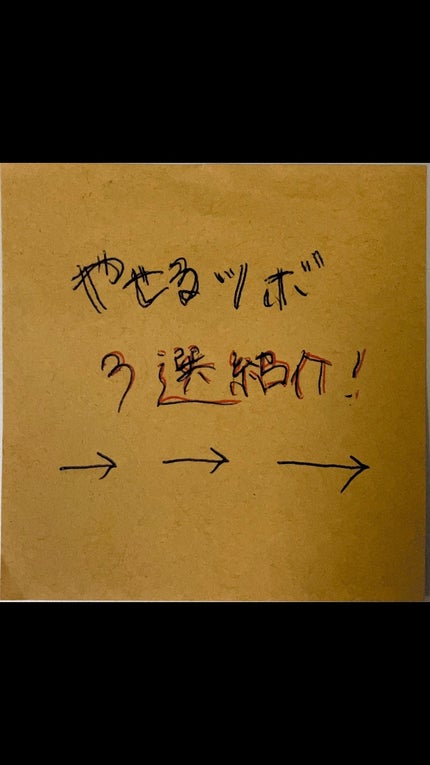 やせるツボ
3選紹介!
→ → →